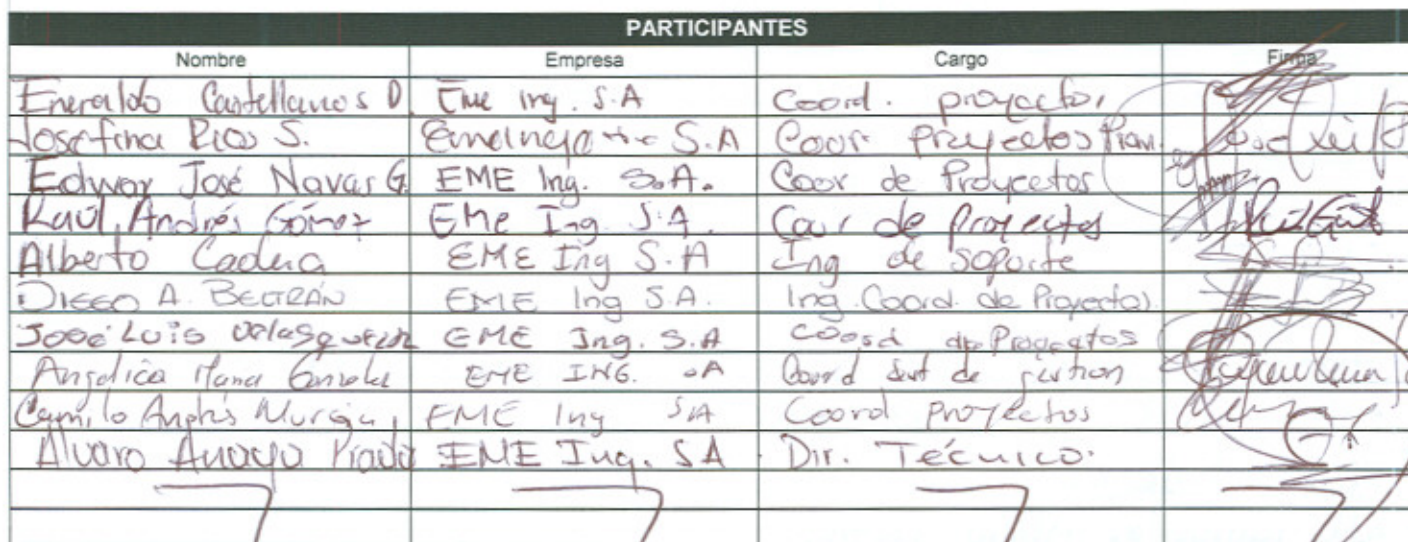 PARTICIPANTES
Nombre Empresa Cargo Firma
Eneraldo Castellanos D. Eme ing. S.A Coord. proyectos
Josefina Rios S. S.A Coor proyectos
Edwar José Navas G. EME Ing. S.A. Coor de Proycetos
Raúl Andrés Gómez EMe Ing S.A. Coor de Proyectos
Alberto Cadena EME Ing S.A Ing de soporte
DIEGO A. BELTRÁN EME Ing S.A. Ing. Coord. de Proyectos.
José Luis Velasquez EME Ing. S.A Coord de Proyectos
Angelica Maria González EME ING. SA Coord de gestion
Camilo Andrés Murcia EME Ing SA Coord proyectos
Alvaro Anaya Prada EME Ing. SA Dir. Técnico.